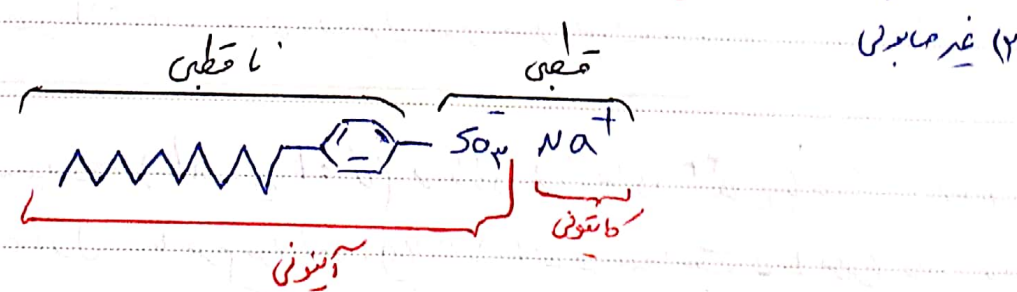 ۲) غیر صابونی
ناقطبی قطبی
SO₃⁻ Na⁺
کاتیونی
آنیونی